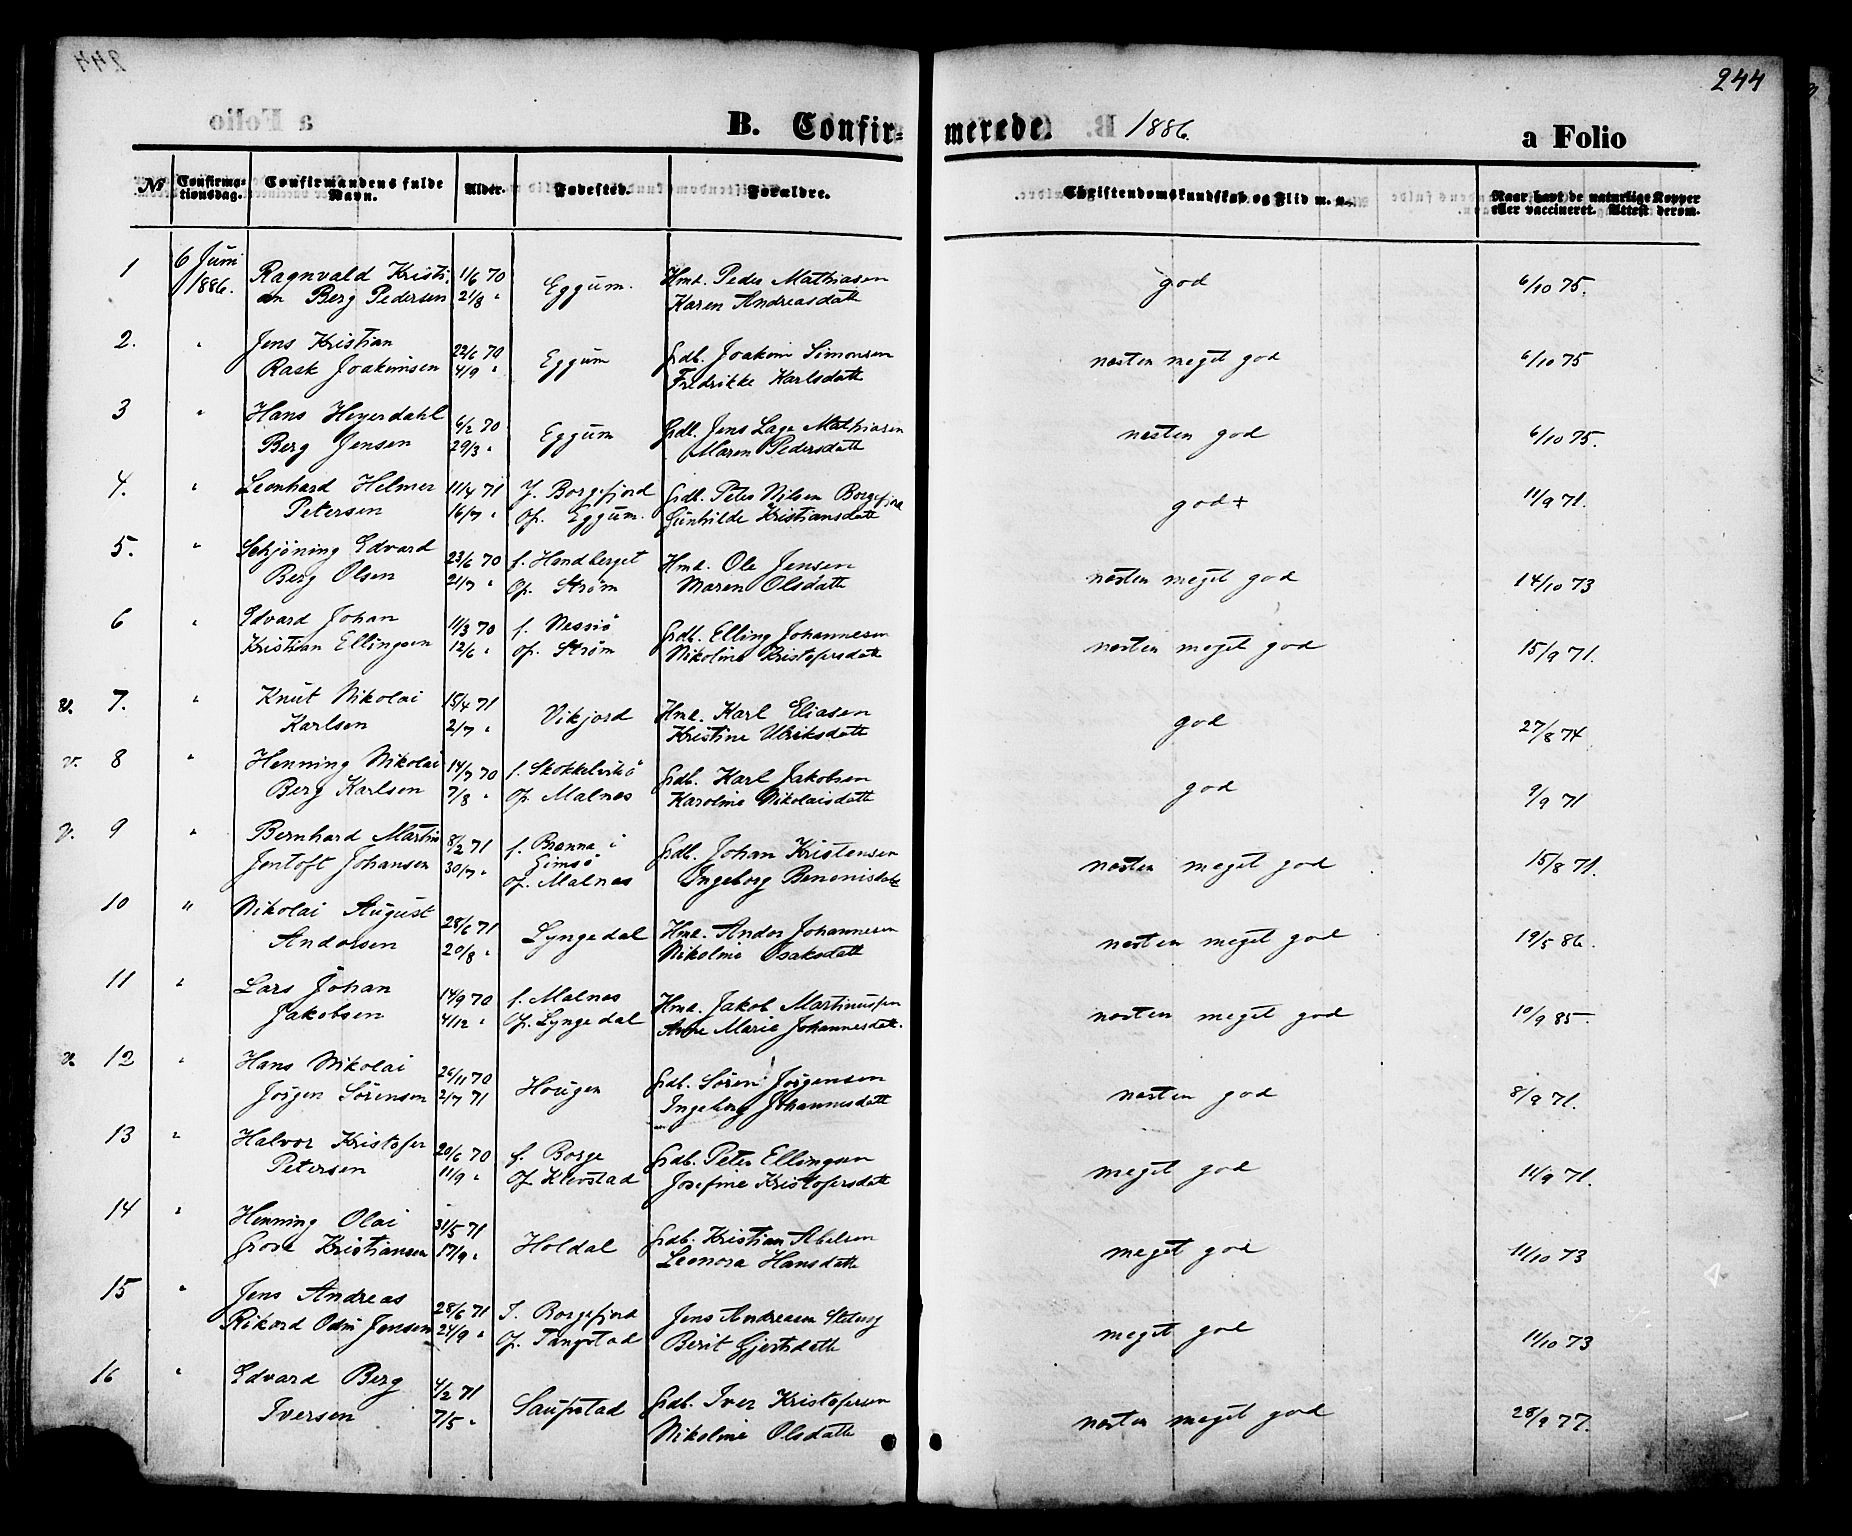 244
B. Confirmerede. 1886. a Folio
№ Confirmationsdag. Confirmandens fulde Navn. Alder. Fødested. Forældre. Christendomskundskab og Flid m. v. Naar havt de naturlige Kopper eller vaccineret. Attest derom.
1 6 Juni 1886. Ragnvald Kristi- 1/6 70 Eggum. Hmd. Peder Mathiasen god 6/10 75.
an Berg Pedersen 21/8 " Karen Andreasdatt
2. " Jens Kristian 22/6 70 Eggum Grdb. Joakim Simonsen nesten meget god 6/10 75
Rask Joakimsen 4/9 " Fredrikke Karlsdatt
3 " Hans Heyerdahl 6/2 70 Eggum Grdb. Jens Lage Mathiasen nesten god 6/10 75.
Berg Jensen 29/3 " Maren Pedersdatt
4. " Leonhard Helmer 11/4 71 f. Borgefjord Grdb. Peter Nilsen Borgefjord god+ 11/9 71.
Petersen 16/7 " Op. Eggum. Gunhilde Kristiansdatt
5. " Schjöning Edvard 23/6 70 f. Handberget Hmd. Ole Jensen nesten meget god 14/10 73
Berg Olsen 21/7 " Op. Strøm Maren Olsdatt
6 " Edvard Johan 11/3 70 f. Nessiö Grdb. Elling Johannesen nesten meget god 15/9 71.
Kristian Ellingsen 12/6 " op. Strøm Nikoline Kristofersdatt
v. 7. " Knut Nikolai 15/4 71 Vikjord Hmd. Karl Eliasen god 27/8 74
Karlsen 2/7 " Kristine Ulriksdatt
v. 8 " Henning Nikolai 14/7 70 f. Skokkelviksö Grdb. Karl Jakobsen god 9/9 71
Berg Karlsen 7/8 " Op. Malnes Karoline Nikolaisdatt
v. 9 " Bernhard Martin 8/2 71 f. Brenna i Grdb. Johan Kristensen nesten meget god 15/8 71.
Jentoft Johansen 30/7 " Gimsö Ingeborg Benonisdatt
op. Malnes
10 " Nikolai August 28/6 71 Lyngedal Hmd. Andor Johannesen nesten meget god 19/5 86.
Andorsen 20/8 " Nikoline Isaksdatt
11 " Lars Johan 14/9 70 f. Malnes Hmd. Jakob Martinussen nesten meget god 10/9 85.
Jakobsen 4/12 " Op. Lyngedal Ane Marie Johannesdatt.
v. 12 " Hans Nikolai 26/11 70 Hougen Grdb. Sören Jörgensen nesten god 8/9 71.
Jörgen Sörensen 2/7 71 Ingeborg Johannesdatt
13 " Halvor Kristofer 20/6 70 f. Borge Grdb. Peter Ellingsen meget god 11/9 71.
Petersen 11/9 " Op. Klevstad Josefine Kristofersdatt
14 " Henning Olai 31/5 71 Holdal Grdb. Kristian Abelsen meget god 11/10 73
Grove Kristiansen 17/9 " Leonora Hansdatt
15 " Jens Andreas 28/6 71 f. Borgefjord Jens Andreasen meget god 11/10 73
Rikard Odin Jensen 24/9 " Op. Tangstad Berit Gjertsdatt
16 " Edvard Berg 4/2 71 Saupstad Grdb. Iver Kristofersen nesten meget god 28/9 77.
Iversen 7/5 " Nikoline Olsdatt